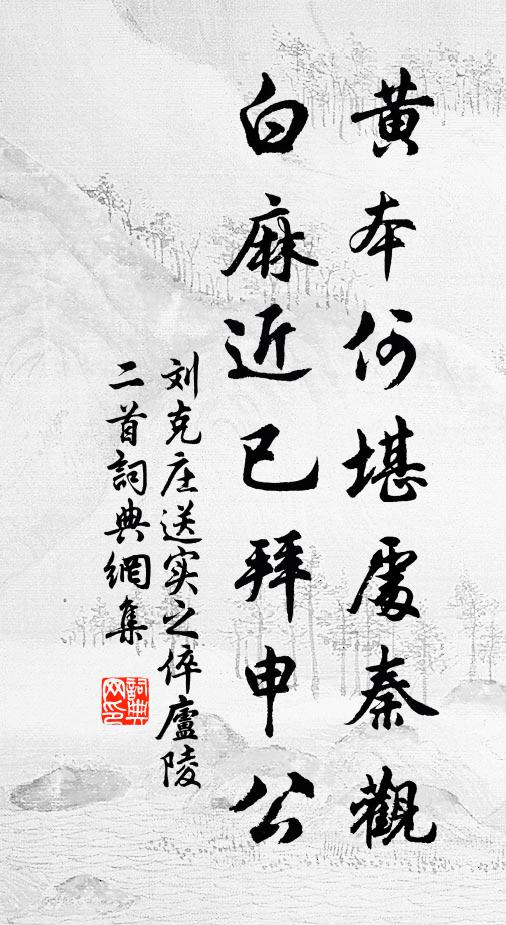 黄本何堪處秦觀
白麻近已拜申公
刘克庄送实之倅廬陵
二首詞典網集
詞典網印